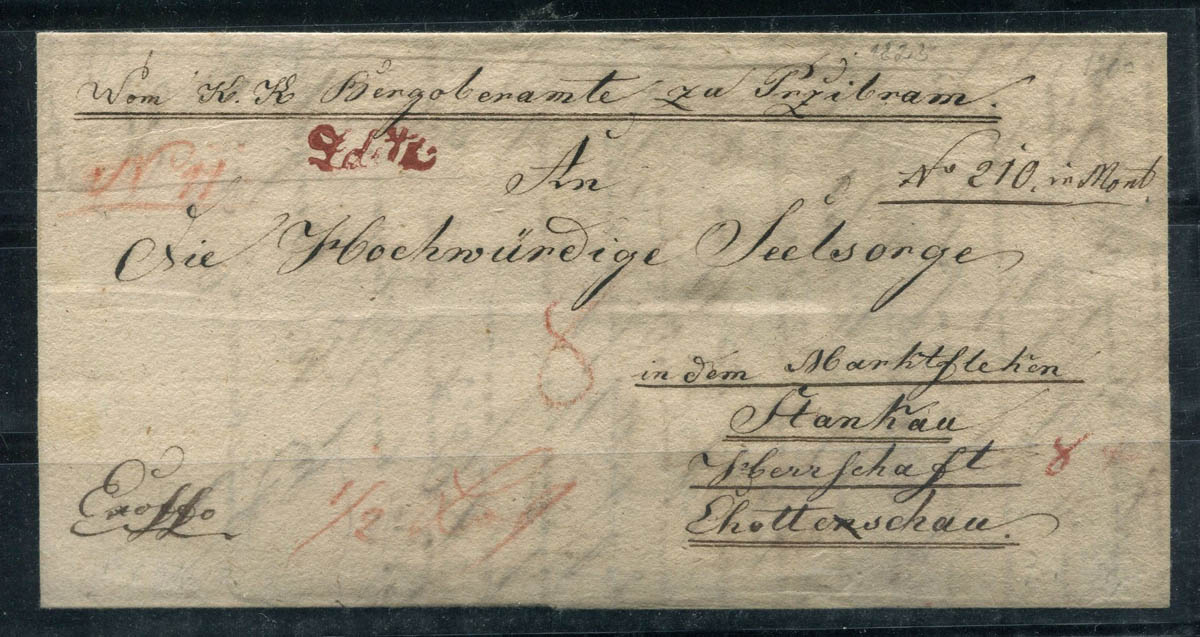 Vom K. K Bergoberamte zu Przibram.
An
No 210. in Mont
Die Hochwürdige Seelsorge
8
in dem Marktfleken
Stankau
Herrschaft 8
Chottenschau.
Exoffo
1/2